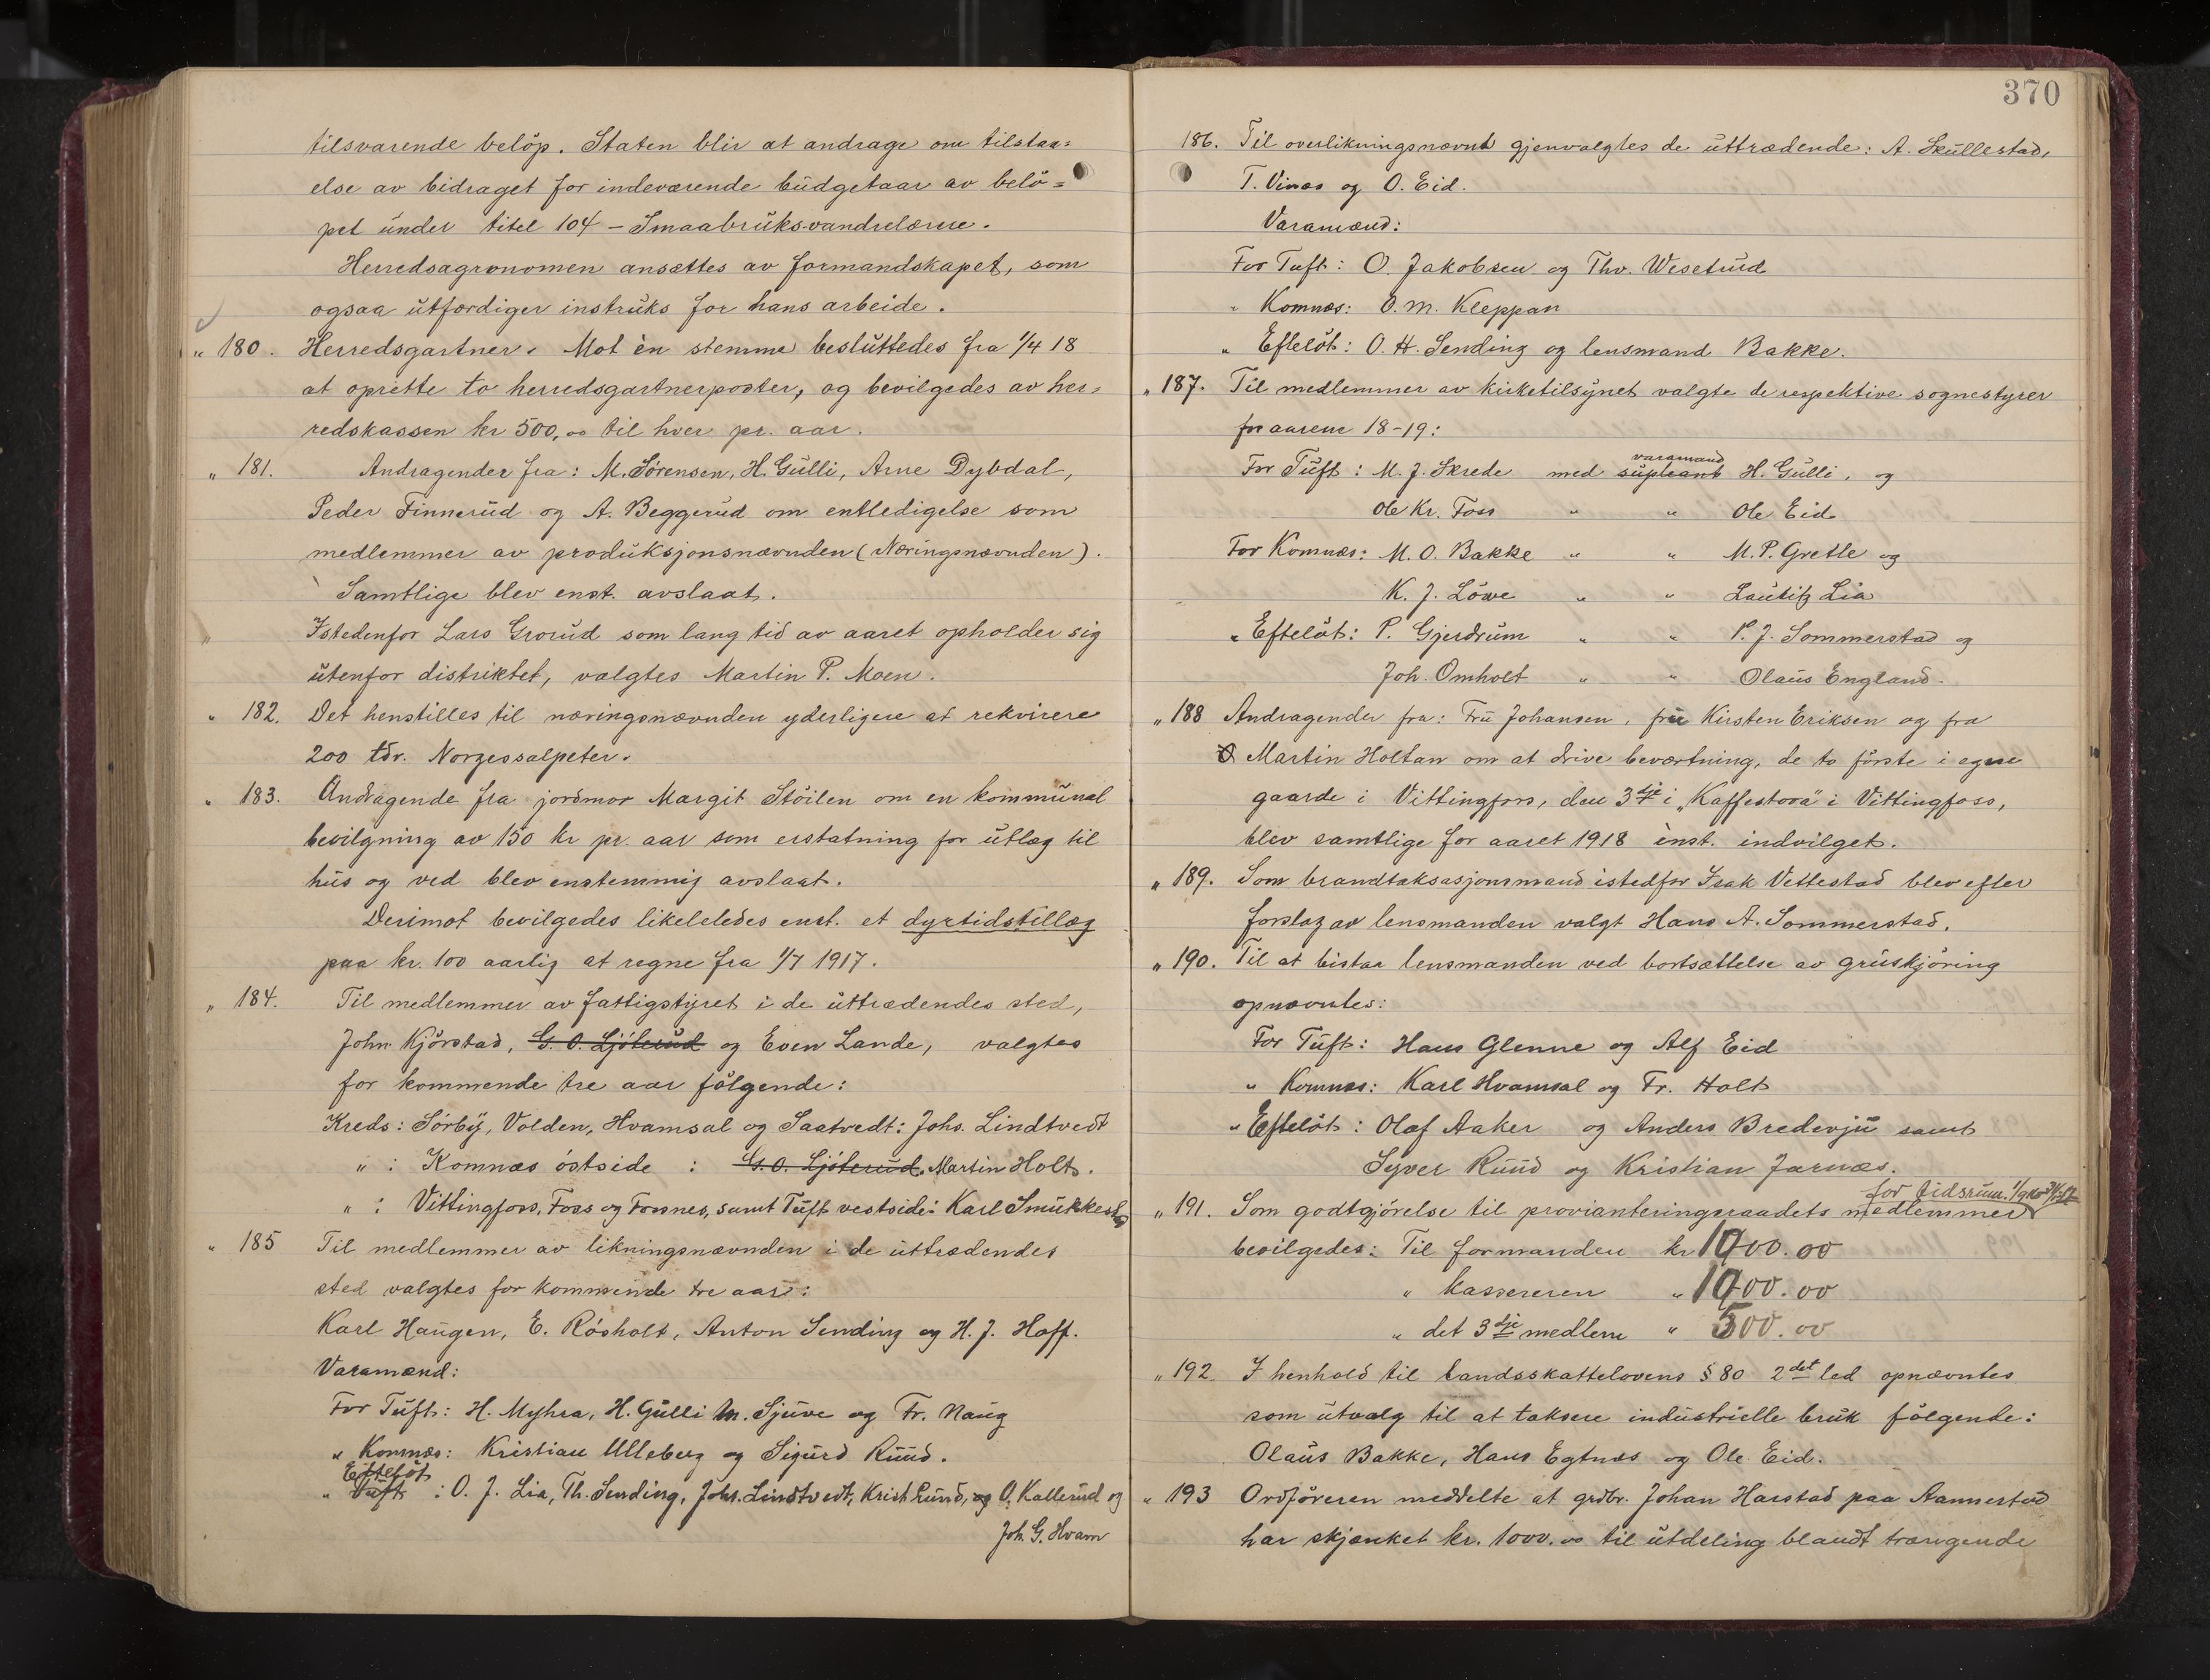 tilsvarende beløp. Staten blir at andrage om tilstaa=
else av bidraget for indeværende budgetaar av belø=
pet under titel 104 – Smaabruksvandrelærere.
Herredsagronomen ansættes av formandskapet, som
ogsaa utfærdiger instruks for hans arbeide.
" 180. Herredsgartner. Mot èn stemme besluttedes fra 1/4 18
at oprette to herredsgartnerposter, og bevilgedes av her=
redskassen kr 500,00 til hver pr. aar.
" 181. Andragender fra: M. Sørensen, H. Gulli, Arne Dybdal,
Peder Finnerud og A. Beggerud om entledigelse som
medlemmer av produksjonsnævnden (Næringsnævnden).
Samtlige blev enst. avslaat.
" Istedenfor Lars Grorud som lang tid av aaret opholder sig
utenfor distriktet, valgtes Martin P. Moen.
" 182. Det henstilles til næringsnævnden yderligere at rekvirere
200 tdr. Norgessalpeter.
" 183. Andragende fra jordmor Margit Støilen om en kommunal
bevilgning av 150 kr pr. aar som erstatning for utlæg til
hus og ved blev enstemmig avslaat.
Derimot bevilgedes likeleledes enst. et dyrtidstillæg
paa kr. 100 aarlig at regne fra 1/7 1917.
" 184. Til medlemmer av fattigstyret i de uttrædendes sted,
John Kjørstad, G. O. Ljøterud og Even Lande, valgtes
for kommende tre aar følgende:
Kreds: Sørby, Volden, Hvamsal og Saatvedt: Johs. Lindtvedt
" : Komnæs østside : G. O. Ljøterud. Martin Holt.
" : Vittingfoss, Foss og Fossnes, samt Tuft vestside: Karl Smukkestad
" 185 Til medlemmer av likningsnævnden i de uttrædendes
sted valgtes for kommende tre aar:
Karl Haugen, E. Røsholt, Anton Sending og H. J. Hoff.
Varamænd:
For Tuft: H. Myhra, H. Gulli M. Sjuve og Fr. Haug
" Komnæs: Kristian Ulleberg og Sigurd Ruud.
Efteløt
" Tuft : O. J. Lia, Th. Sending, Johs. Lindtvedt, Krist Ruud, og O. Kallerud og
Joh. G. Hvam
370
186. Til overlikningsnævnd gjenvalgtes de uttrædende: A. Skullestad,
T. Vinæs og O. Eid.
Varamænd:
For Tuft: O. Jakobsen og Thv. Wesetrud
" Komnæs: O. M. Kleppan
" Efteløt: O. H. Sending og lensmand Bakke.
" 187. Til medlemmer av kirketilsynet valgte de respektive sognestyrer
for aarene 18-19:
varamand
For Tuft: M. J. Skrede med supleant H. Gulli, og
Ole Kr. Foss " " Ole Eid
For Komnæs: M. O. Bakke " " M. P. Gretle og
K. J. Löwe " " Lauritz Lia
" Efteløt: P. Gjerdrum " " P. J. Sommerstad og
Joh. Omholt " " Olaus England.
" 188 Andragender fra: Fru Johansen, fru Kirsten Eriksen og fra
Martin Holtan om at drive beværtning, de to første i egne
gaarde i Vittingfoss, den 3dje i "Kaffestova" i Vittingfoss,
blev samtlige for aaret 1918 enst. indvilget.
" 189. Som brandtaksasjonsmand istedfor Isak Vettestad blev efter
forslag av lensmanden valgt Hans A. Sommerstad.
" 190. Til at bistaa lensmanden ved bortsættelse av gruskjøring
opnævntes:
For Tuft: Hans Glenne og Alf Eid
" Komnæs: Karl Hvamsal og Fr. Holt
" Efteløt: Olaf Aaker og Anders Bredevju samt
Syver Ruud og Kristian Jarnæs.
for tidsrum.
" 191. Som godtgjørelse til provianteringsraadets medlemmer
bevilgedes: Til formanden kr 1000.00
" kassereren " 1000.00
" det 3dje medlem " 500.00
" 192. I henhold til landsskattelovens § 80 2det led opnævntes
som utvalg til at taksere industrielle bruk følgende:
Olaus Bakke, Hans Egtnæs og Ole Eid.
" 193 Ordføreren meddelte at grdbr. Johan Harstad paa Aannerstad
har skjænket kr. 1000.00 til utdeling blandt trængende